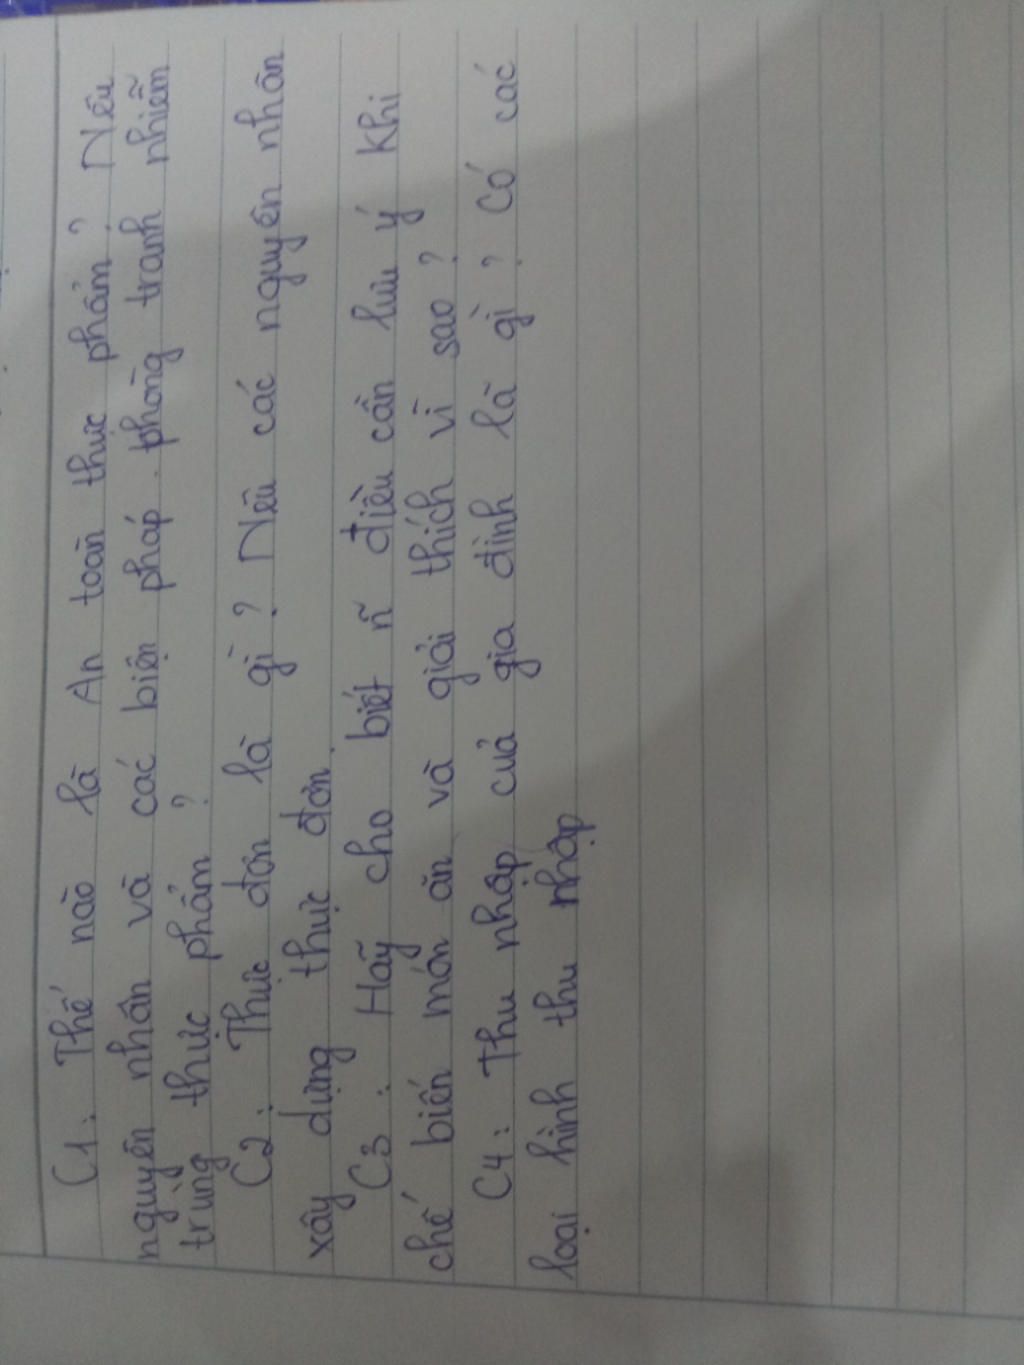 C1: Thế nào là An toàn thực phẩm? Nêu
nguyên nhân và các biện pháp phòng tranh nhiễm
trùng thực phẩm?
C2: Thực đơn là gì? Nêu các nguyên nhân
xây dựng thực đơn.
C3: Hãy cho biết ñ điều cần lưu ý khi
chế biến món ăn và giải thích vì sao?
C4: Thu nhập của gia đình là gì? Có các
loại hình thu nhập